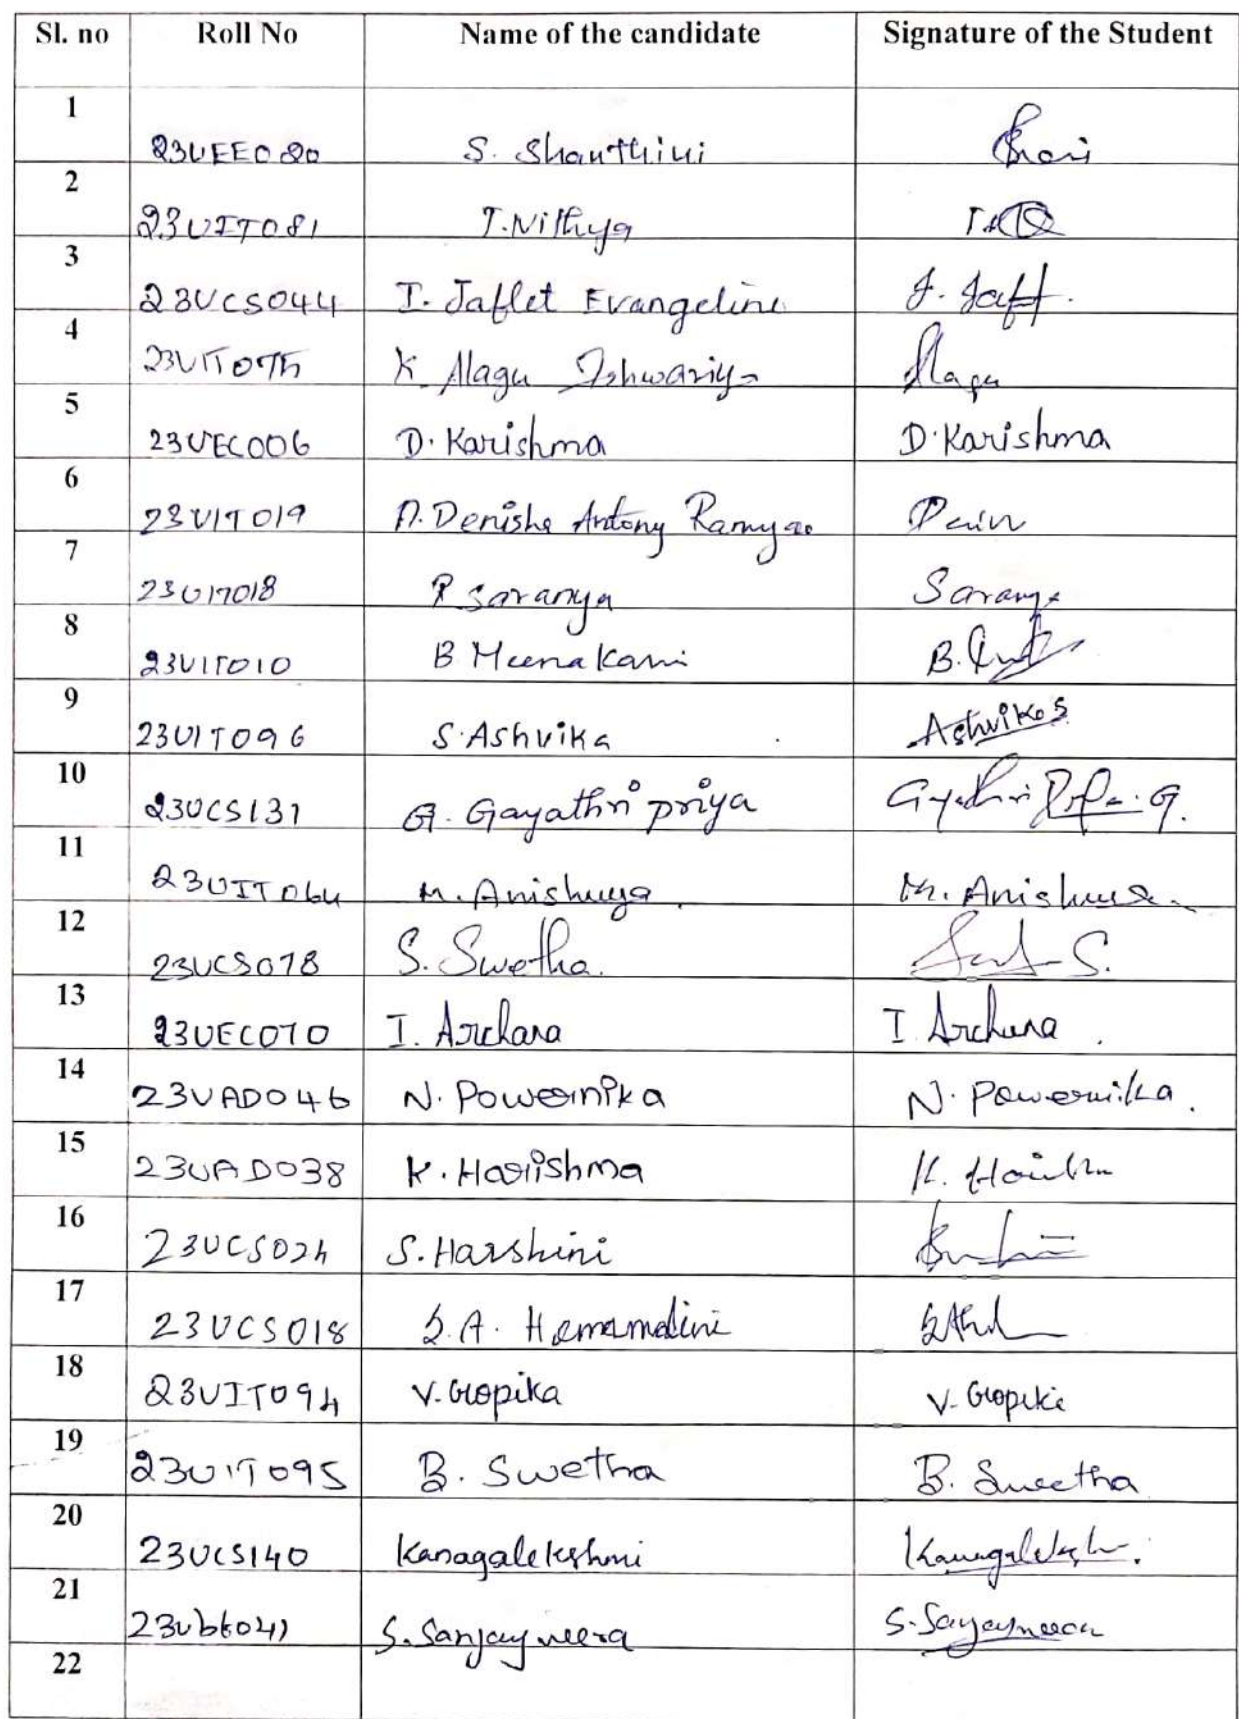 Sl. no Roll No Name of the candidate Signature of the Student
1 23UEE080 S. Shanthini
2 23UIT081 T. Nithya
3 23UCS044 I. Jaflet Evangeline J. Jaff.
4 23UIT075 K. Alagu Ishwariya Alagu
5 23UEC006 D. Karishma D. Karishma
6 23UIT019 A. Denisha Antony Ramya
7 23UIT018 P Saranya Saranya
8 23UIT010 B Meena Kani B.
9 23UIT096 S. Ashvika Ashvika S
10 23UCS131 G. Gayathri priya Gayathri Priya. G.
11 23UIT064 M. Anishuya. M. Anishuya.
12 23UCS078 S. Swetha. S.
13 23UEC070 I. Archana I. Archana.
14 23UAD046 N. Powernika N. Powernika.
15 23UAD038 K. Harishma K.
16 23UCS024 S. Harshini
17 23UCS018 S.A. Hemamalini
18 23UIT094 V. Gopika V. Gopika
19 23UIT095 B. Swetha B. Swetha
20 23UCS140 Kanagalekshmi Kanagaleksh.
21 23UBT041 S. Sanjay meera S. Sanjaymeera
22